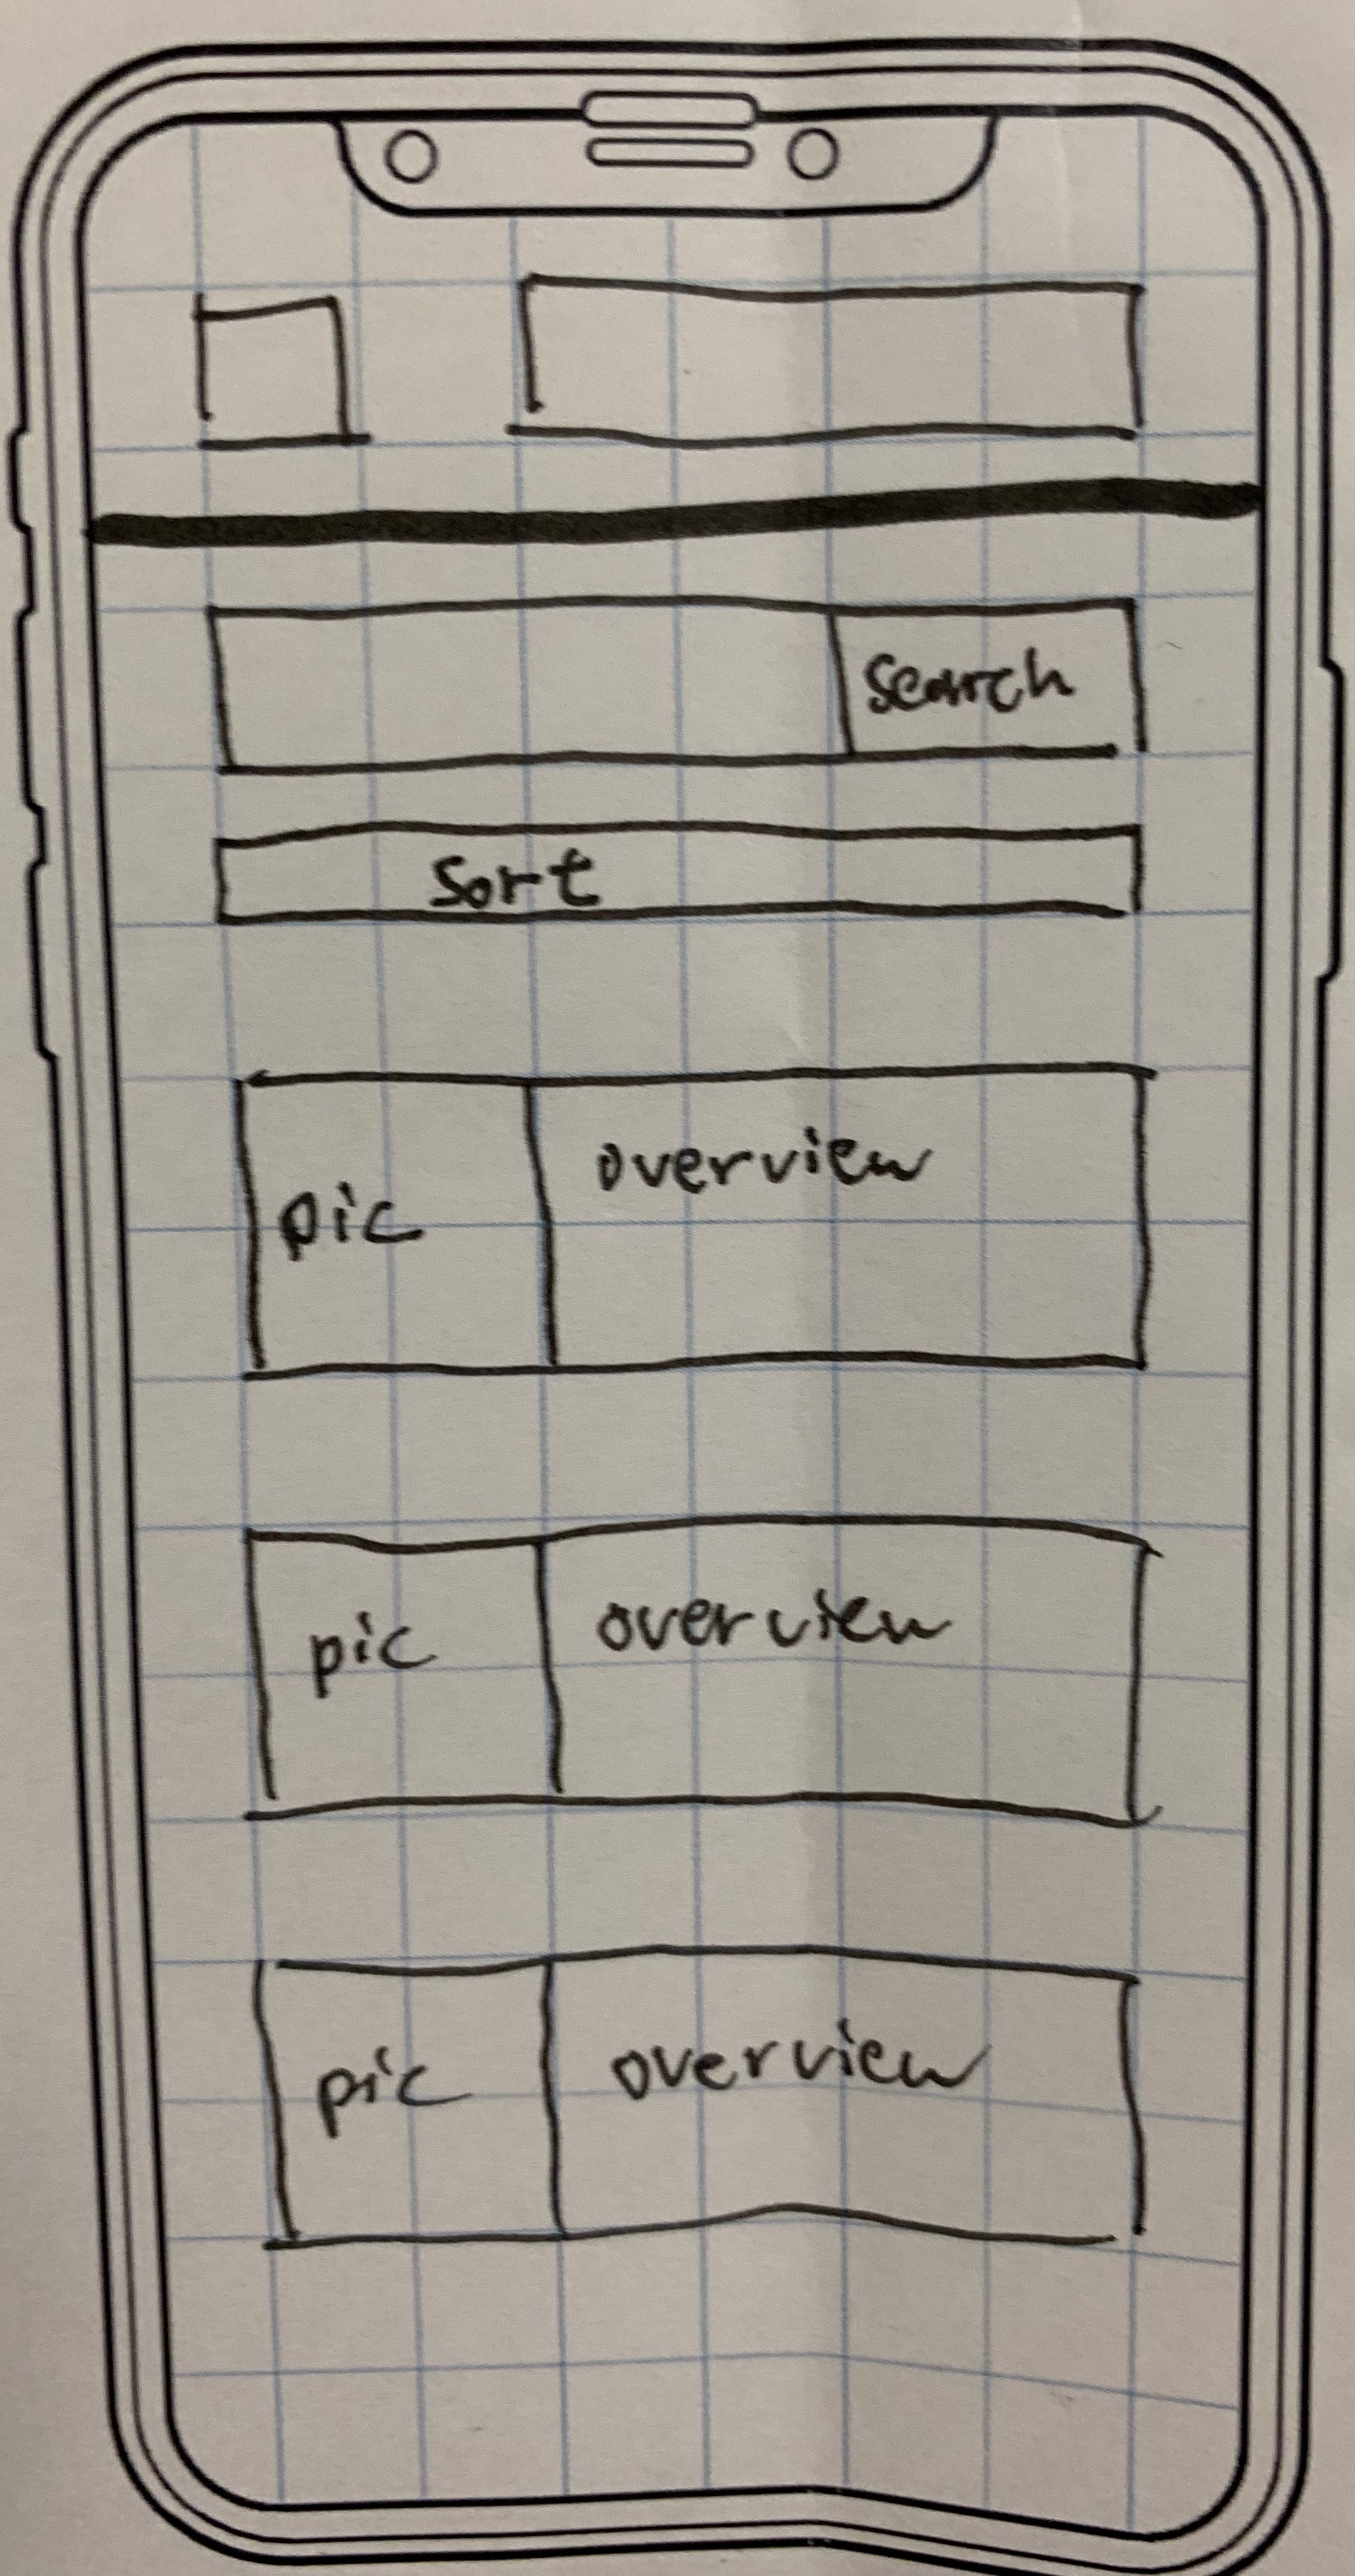 search
sort
pic
overview
pic
overview
pic
overview